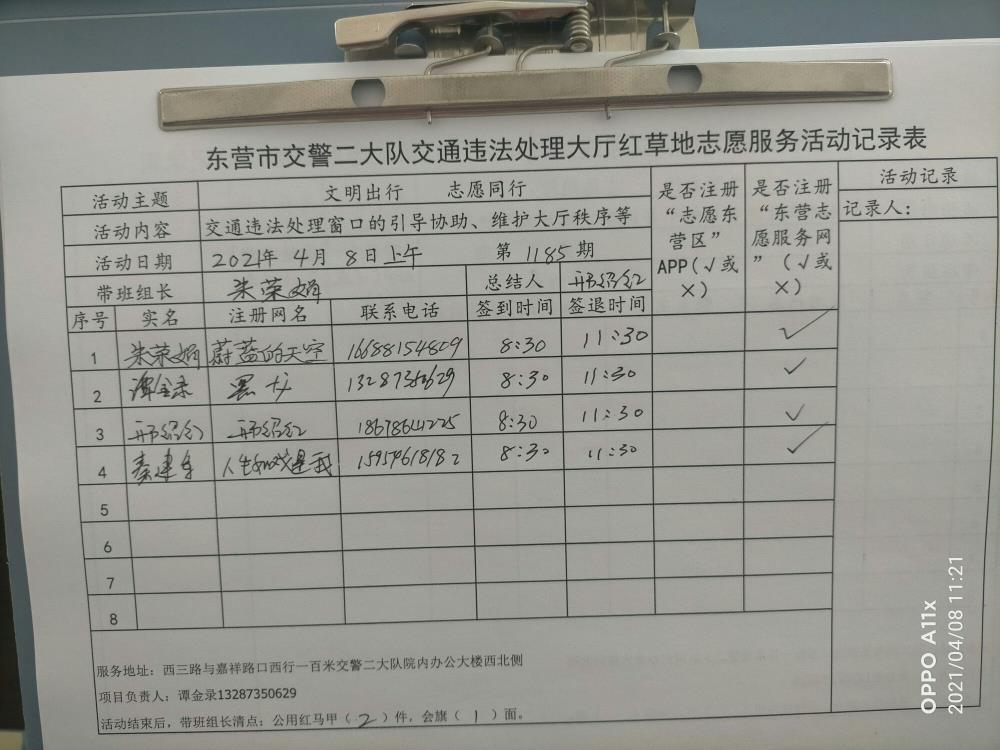 东营市交警二大队交通违法处理大厅红草地志愿服务活动记录表
活动主题 文明出行 志愿同行 是否注册“志愿东营区”APP(√或×) 是否注册“东营志愿服务网”(√或×) 活动记录
活动内容 交通违法处理窗口的引导协助、维护大厅秩序等 记录人:
活动日期 2021年 4月 8日上午 第 1185 期
带班组长 朱荣娟 总结人 邢绍红
序号 实名 注册网名 联系电话 签到时间 签退时间
1 朱荣娟 蔚蓝的天空 16688154809 8:30 11:30 √
2 谭金录 13287350629 8:30 11:30 √
3 邢绍红 邢绍红 18678641225 8:30 11:30 √
4 秦建 8:30 11:30 √
5
6
7
8
服务地址:西三路与嘉祥路口西行一百米交警二大队院内办公大楼西北侧
项目负责人:谭金录13287350629
活动结束后,带班组长清点:公用红马甲(2)件,会旗(1)面。
OPPO A11x
2021/04/08 11:21